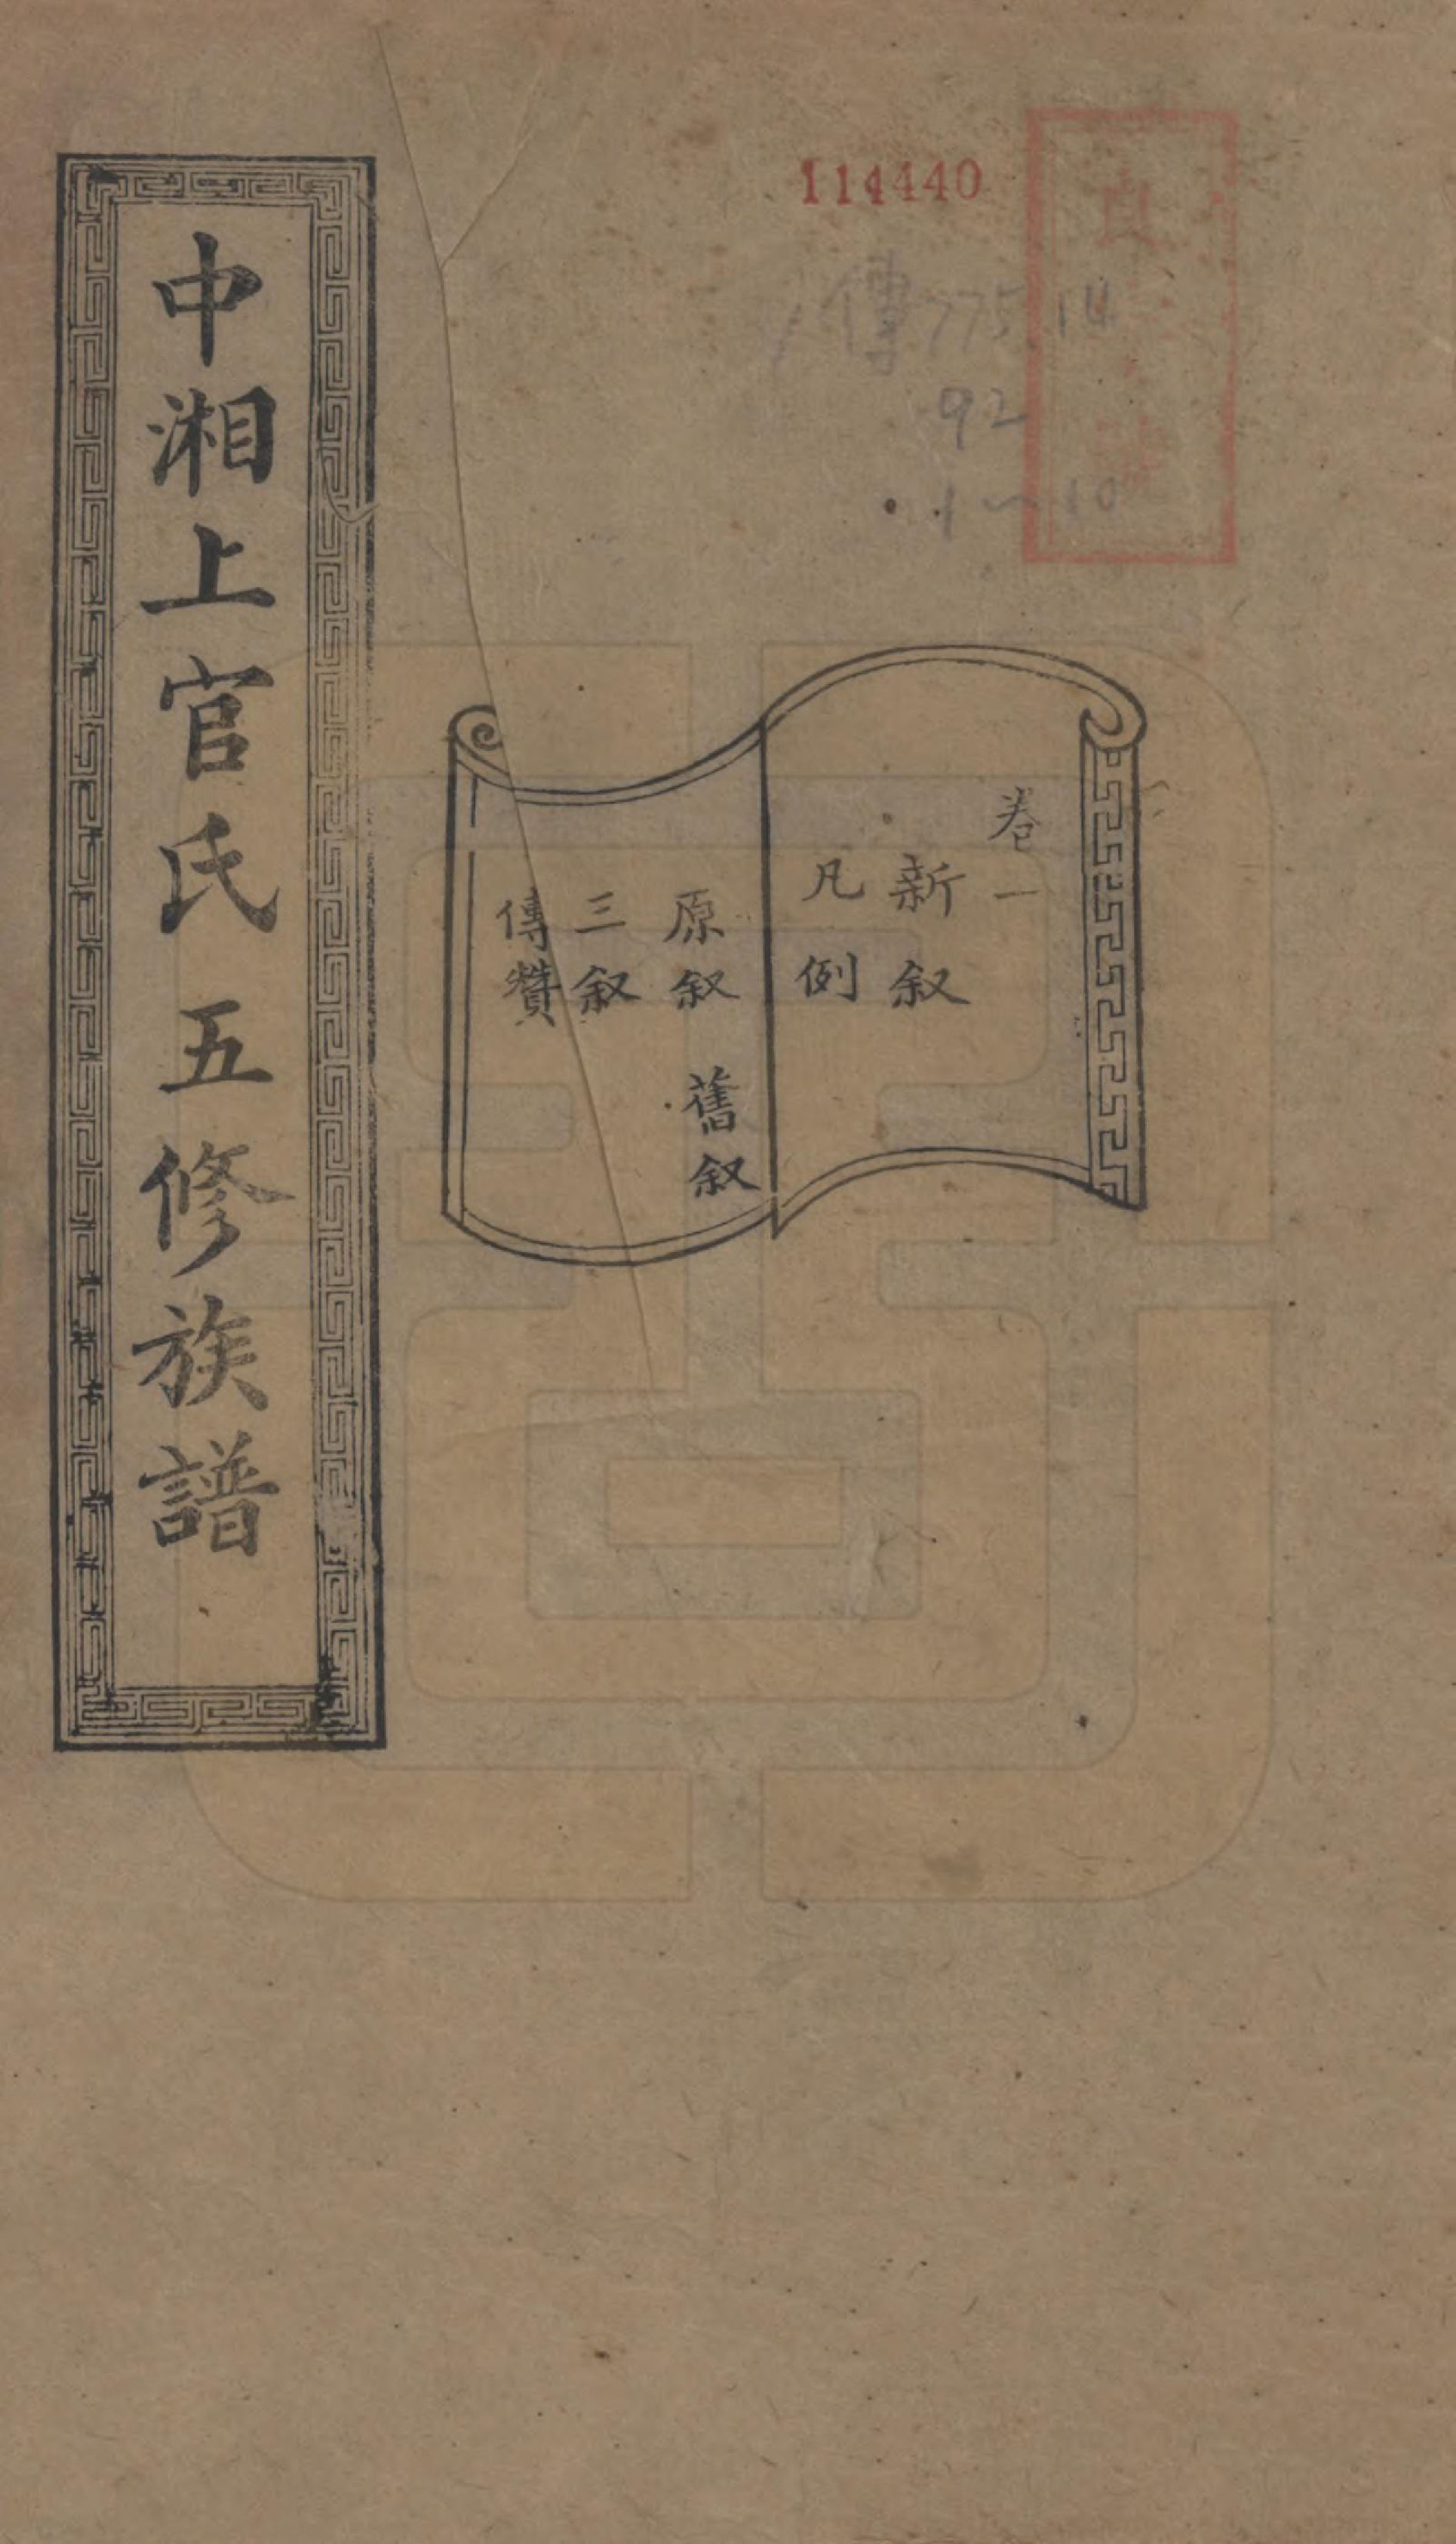 中湘上官氏五修族譜
114440
傳775.14
92
1~10
卷一
新叙
凡例
原叙 舊叙
三叙
傳贊